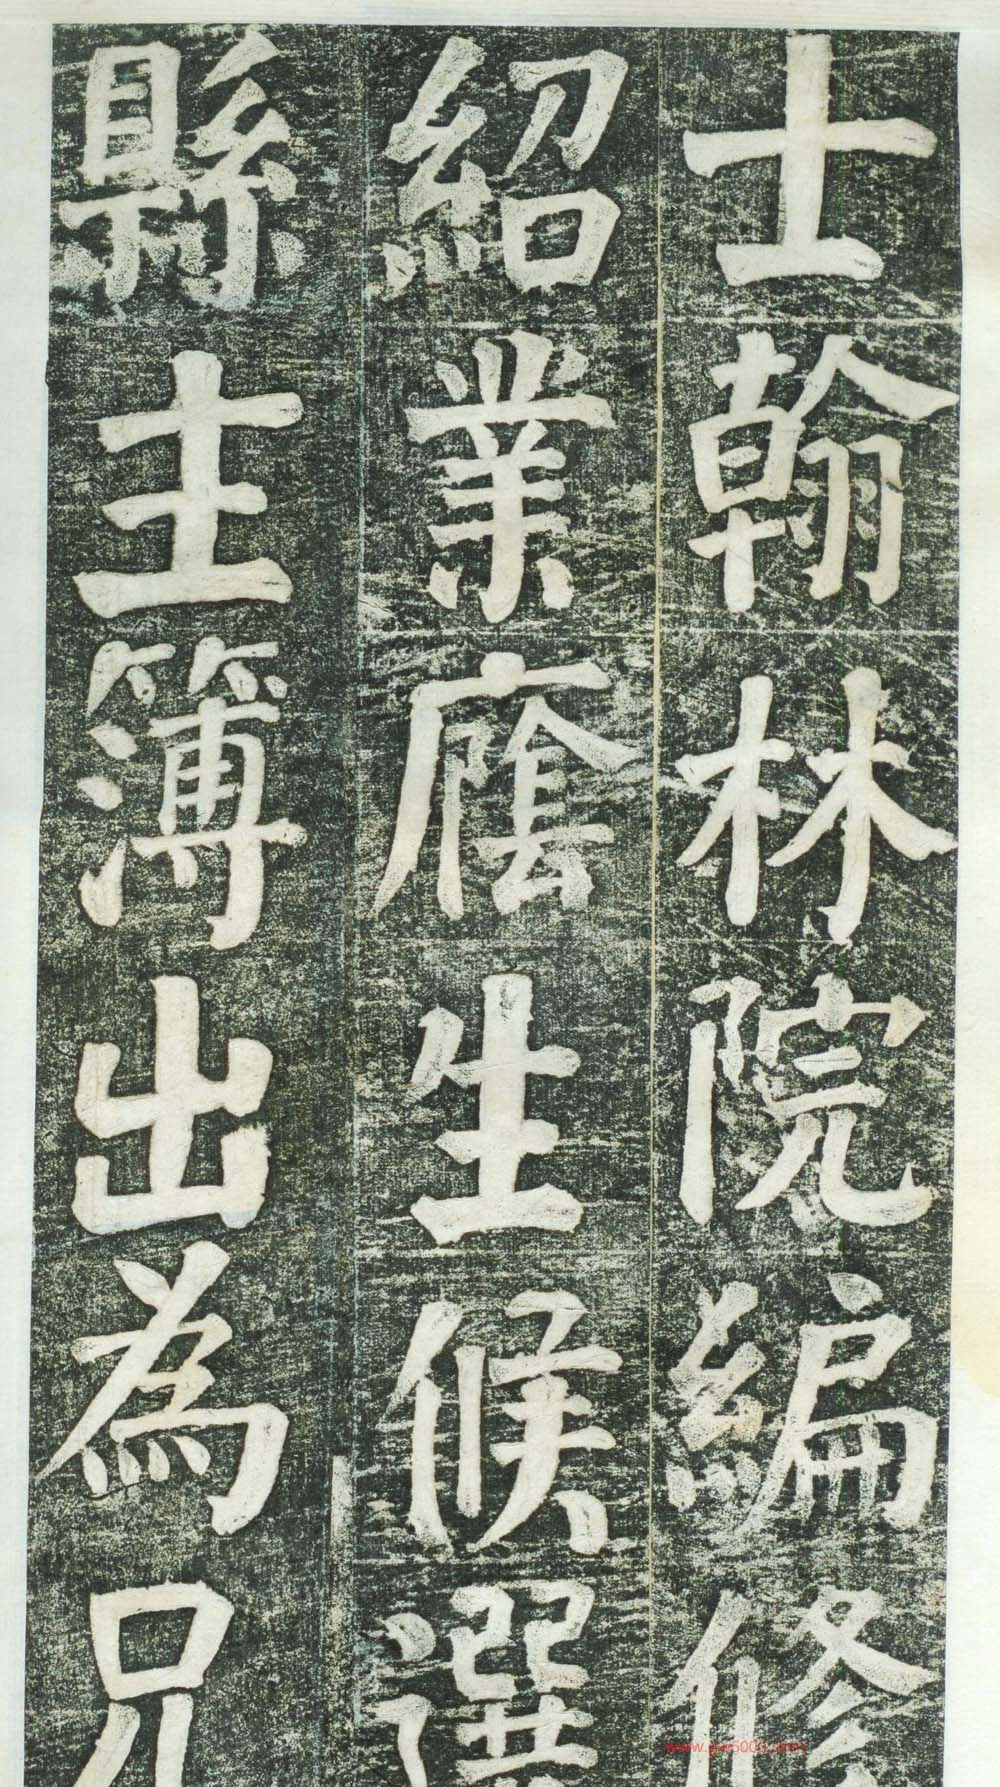 士翰林院編修
紹業廕生候選
縣主簿出為兄
www.gw5000.com